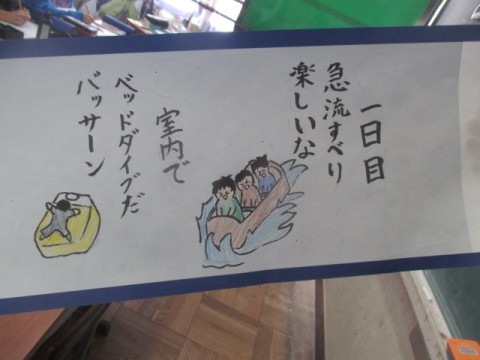 一日目
急流すべり
楽しいな
室内で
ベッドダイブだ
バッサーン